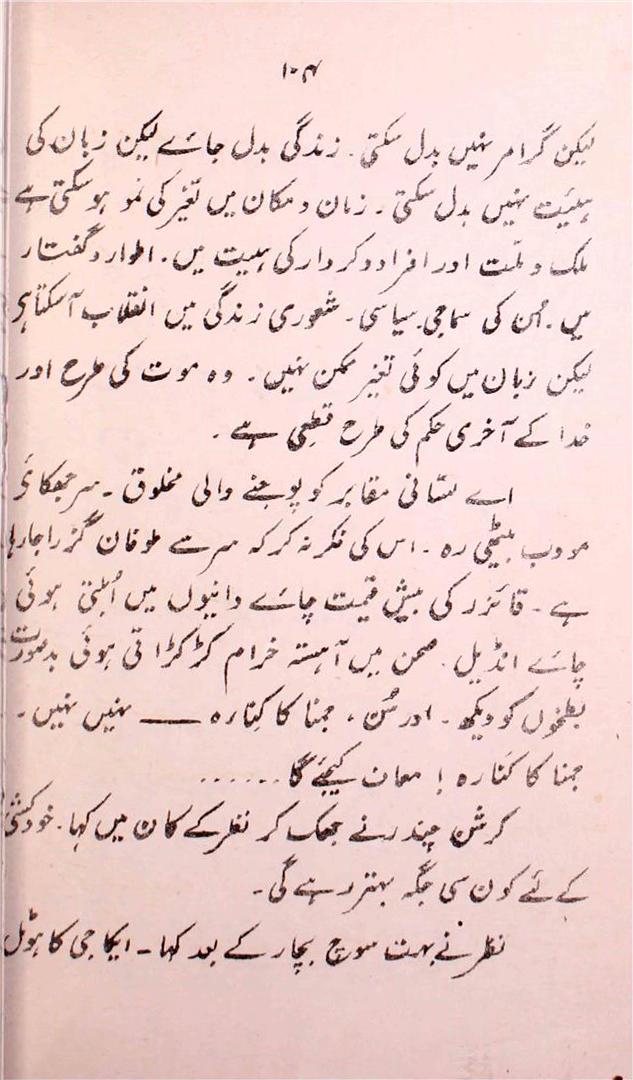 ۱۰۴
لیکن گرامر نہیں بدل سکتی۔ زندگی بدل جائے لیکن زبان کی
ہیئت نہیں بدل سکتی۔ زمان و مکان میں تغیر کی نمو ہو سکتی ہے
ملک و ملت اور افراد و کردار کی ہیئت میں۔ اطوار و گفتار
میں۔ اُن کی سماجی۔ سیاسی۔ شعوری زندگی میں انقلاب آ سکتا ہی
لیکن زبان میں کوئی تغیر ممکن نہیں۔ وہ موت کی طرح اور
خدا کے آخری حکم کی طرح قطعی ہے۔
اے لسانی مقابر کو پوجنے والی مخلوق۔ سر جھکائے
مودب بیٹھی رہ۔ اس کی فکر نہ کر کہ سر سے طوفان گزرا جا رہا
ہے۔ قائزر کی بیش قیمت چائے دانیوں میں اُبلتی ہوئی
چائے انڈیل۔ صحن میں آہستہ خرام کڑکڑاتی ہوئی بدصورت
بطخوں کو دیکھ۔ اور سُن، جمنا کا کِنارہ ــــ نہیں نہیں۔
جمنا کا کنَارہ! معاف کیجئے گا......
کرشن چندر نے جھک کر نظر کے کان میں کہا۔ خودکشی
کے لئے کون سی جگہ بہتر رہے گی۔
نظر نے بہت سوچ بچار کے بعد کہا۔ ایکا جی کا ہوٹل